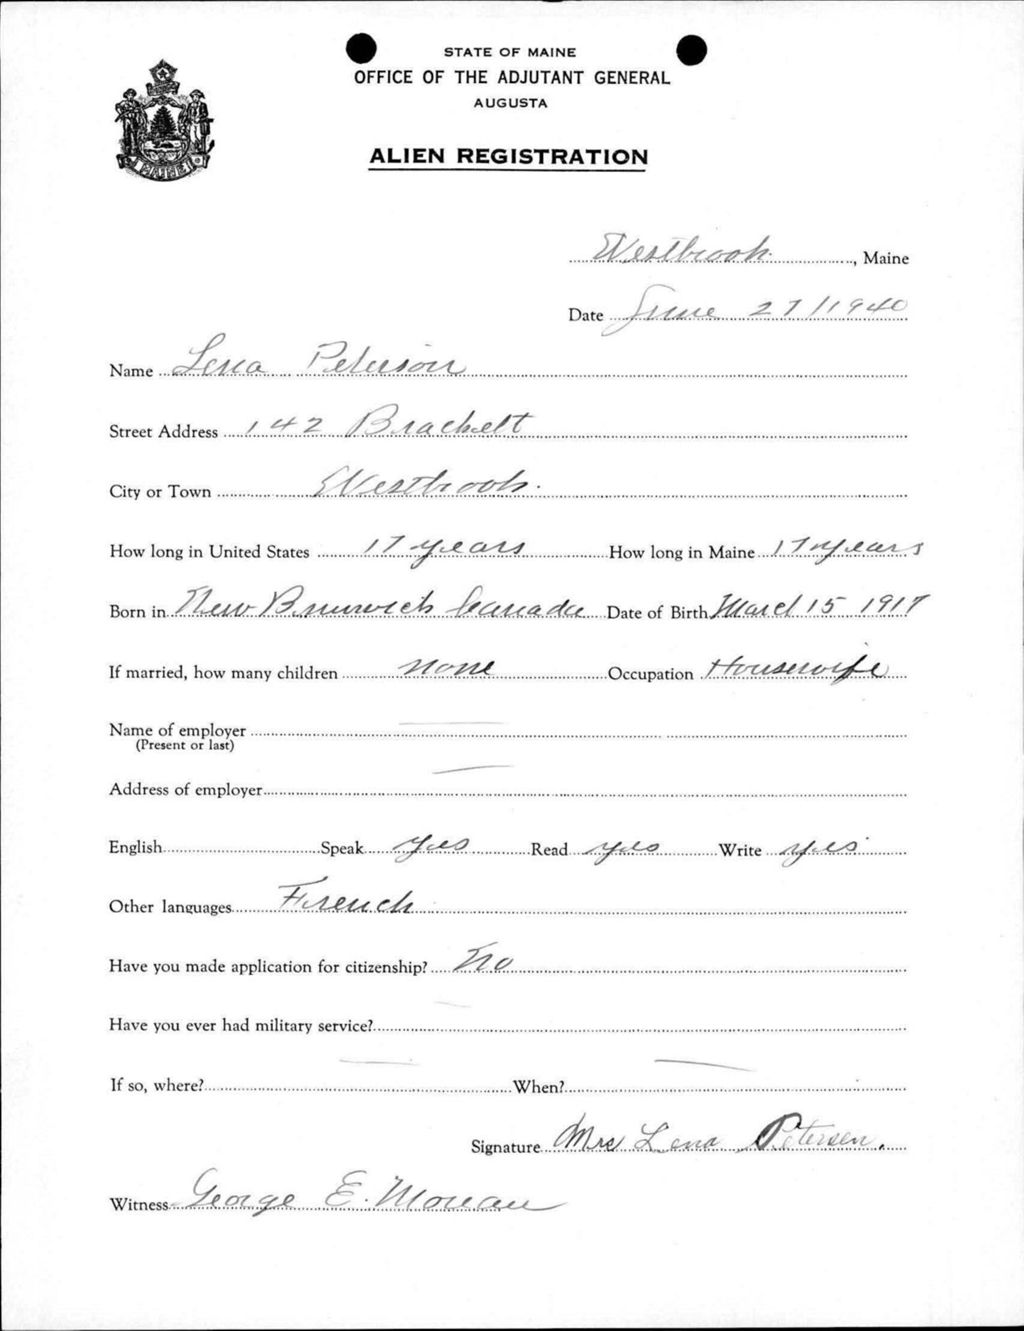 STATE OF MAINE
OFFICE OF THE ADJUTANT GENERAL
AUGUSTA
ALIEN REGISTRATION
MAINE
Westbrook, Maine
Date June 27/1940
Name Lena Peterson
Street Address 142 Brackett
City or Town Westbrook.
How long in United States 17 years How long in Maine 17 years
Born in New Brunswick Canada Date of Birth March 15 1917
If married, how many children none Occupation Housewife
Name of employer
(Present or last)
Address of employer
English Speak yes Read yes Write yes
Other languages French
Have you made application for citizenship? No
Have you ever had military service?
If so, where? When?
Signature Mrs Lena Petersen.
Witness George E. Moreau